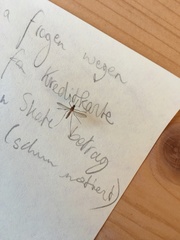 a fragen wegen
für Kreditkarte
n Skate betrag
(schun notiert)